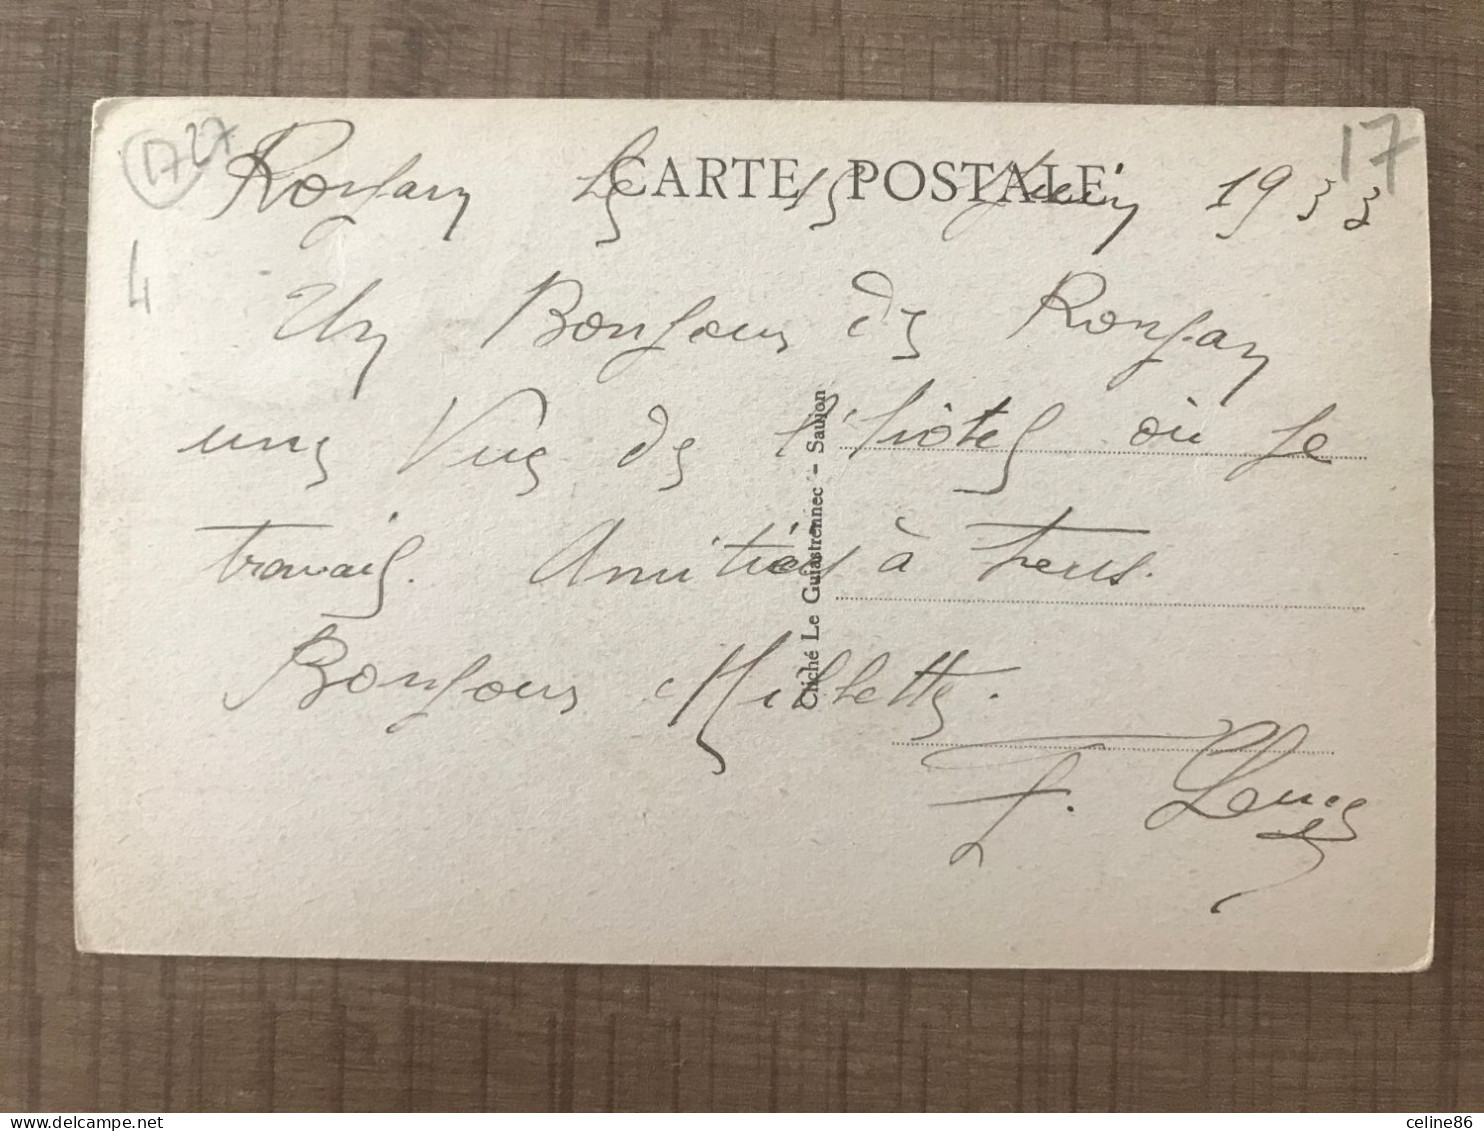 17 27
17
4
CARTE POSTALE
Ronfary le 15 Juin 1933
Un Bonjour de Ronfary
une Vue de l'hôtel où je
travail. Amitiés à tous.
Bonjour
F.
Cliché Le Guiastrennec - Saujon
delcampe.net
celine86